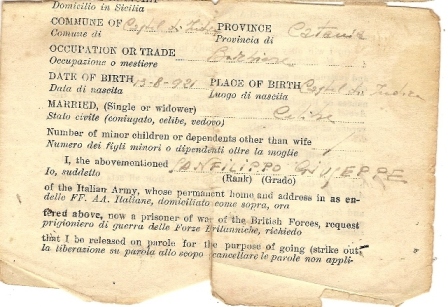 Domicilio in Sicilia
COMMUNE OF Castel di Iudica PROVINCE Catania
Comune di Provincia di
OCCUPATION OR TRADE
Occupazione o mestiere
DATE OF BIRTH 13-8-921 PLACE OF BIRTH Castel di Iudica
Data di nascita Luogo di nascita
MARRIED, (Single or widower) Celibe
Stato civile (coniugato, celibe, vedovo)
Number of minor children or dependents other than wife
Numero dei figli minori o dipendenti oltre la moglie
I, the abovementioned SANFILIPPO GIUSEPPE
Io, suddetto (Rank) (Grado)
of the Italian Army, whose permanent home and address in as en-
delle FF. AA. Italiane, domiciliato come sopra, ora
tered above, now a prisoner of war of the British Forces, request
prigioniero di guerra delle Forze Britanniche, richiedo
that I be released on parole for the purpose of going (strike out
la liberazione su parola allo scopo cancellare le parole non appli-